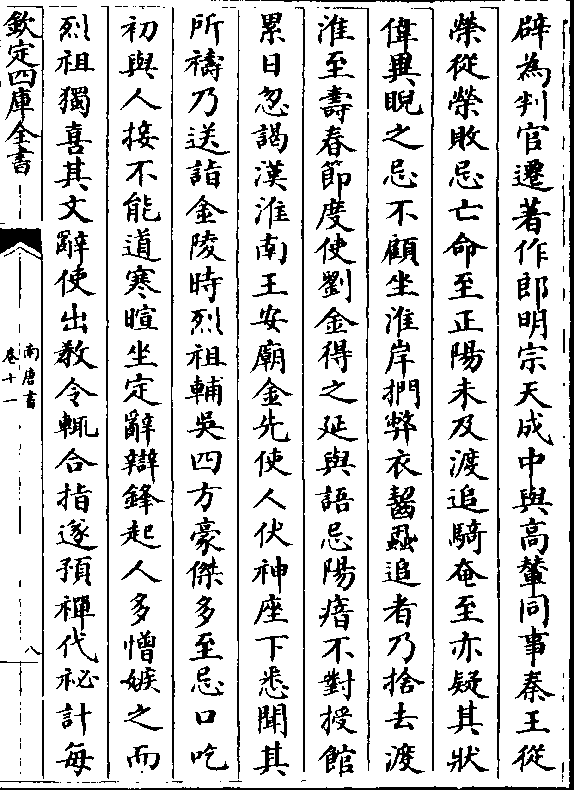 辟為判官遷著作郎明宗天成中與高輦同事秦王從
榮從榮敗忌亡命至正陽未及渡追騎奄至亦疑其狀
偉異睨之忌不顧坐淮岸捫弊衣齧蝨追者乃捨去渡
淮至壽春節度使劉金得之延與語忌陽瘖不對授館
累日忽謁漢淮南王安廟金先使人伏神座下悉聞其
所禱乃送詣金陵時烈祖輔吳四方豪傑多至忌口吃
初與人接不能道寒暄坐定辭辯鋒起人多憎嫉之而
烈祖獨喜其文辭使出教令輒合指遂預禪代秘計每
欽定四庫全書
南唐書
卷十一
八